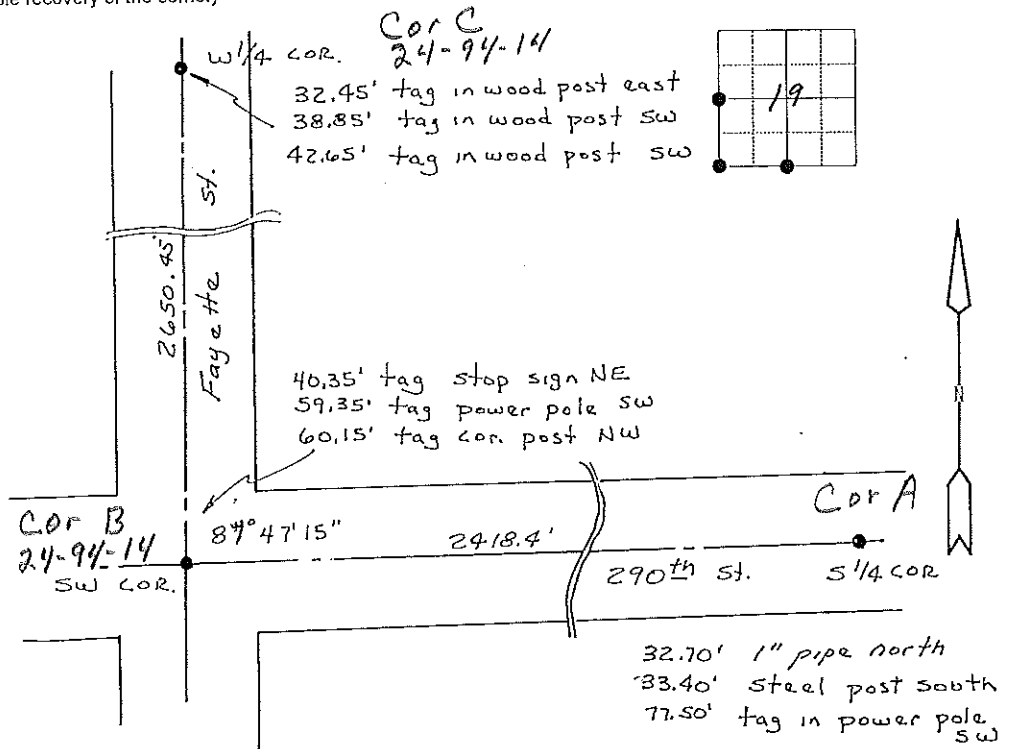 ble recovery of the corner)
Cor C
24-94-14
W 1/4 COR.
32.45' tag in wood post east
38.85' tag in wood post SW
42.65' tag in wood post SW
19
2650.45'
Fayette St.
N
40.35' tag stop sign NE
59.35' tag power pole SW
60.15' tag cor. post NW
Cor B
24-94-14
SW COR.
47'15"
2418.4'
290th St.
Cor A
S 1/4 COR
32.70' 1" pipe north
33.40' steel post south
77.50' tag in power pole
SW